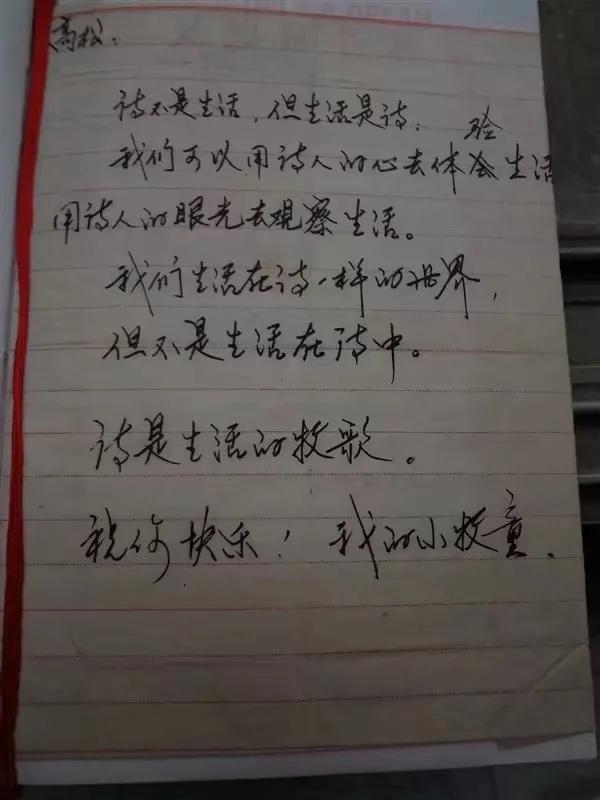 高松：
诗不是生活，但生活是诗；
验
我们可以用诗人的心去体会生活
用诗人的眼光去观察生活。
我们生活在诗一样的世界，
但不是生活在诗中。
诗是生活的牧歌。
祝你快乐！我的小牧童。